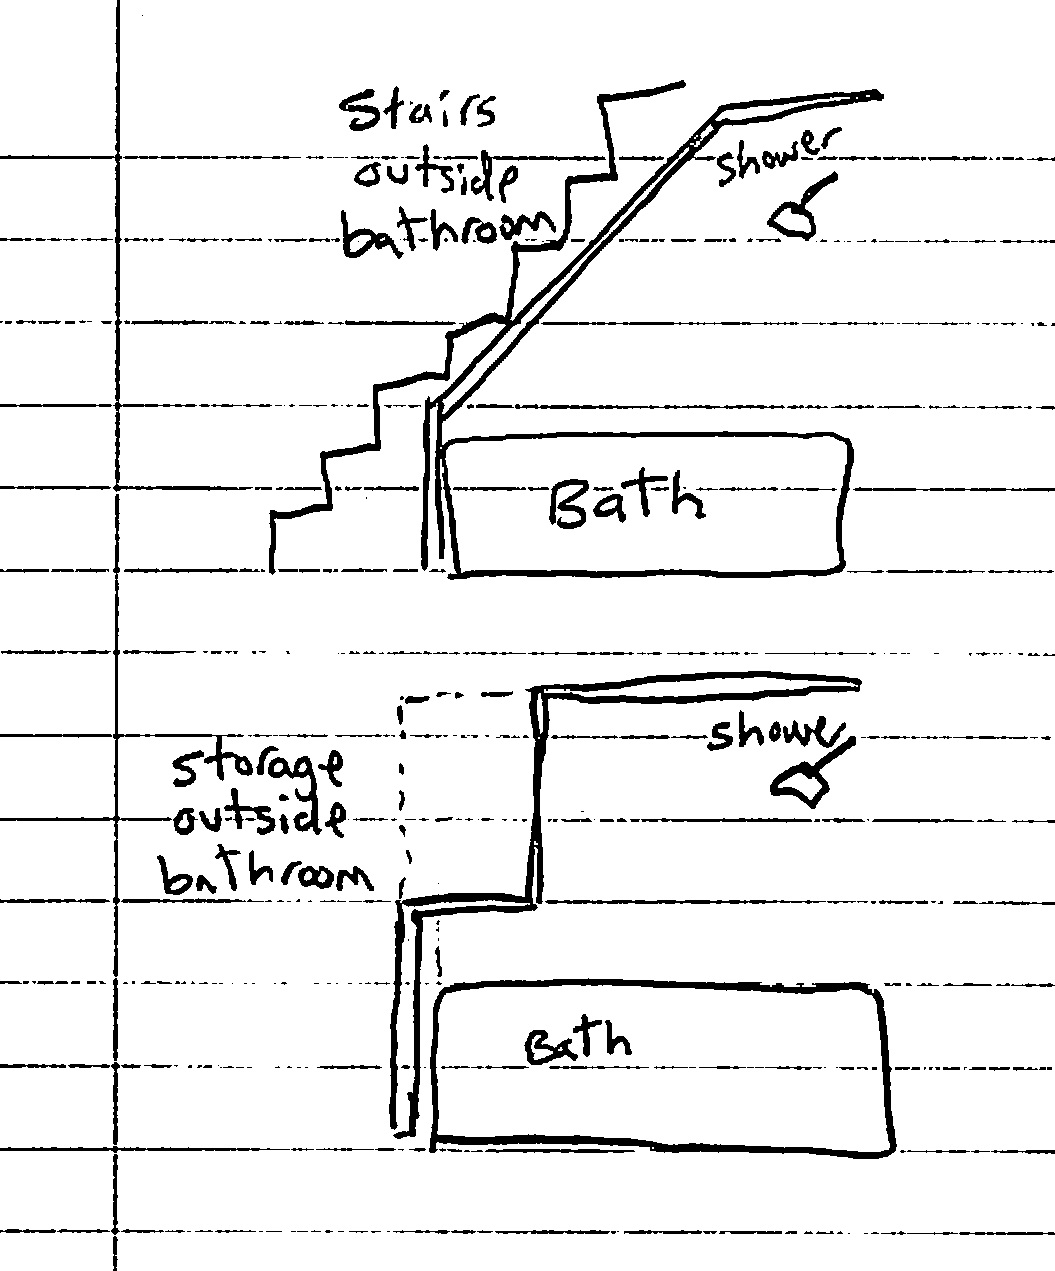 Stairs
outside
bathroom
shower
Bath
storage
outside
bathroom
showe
Bath